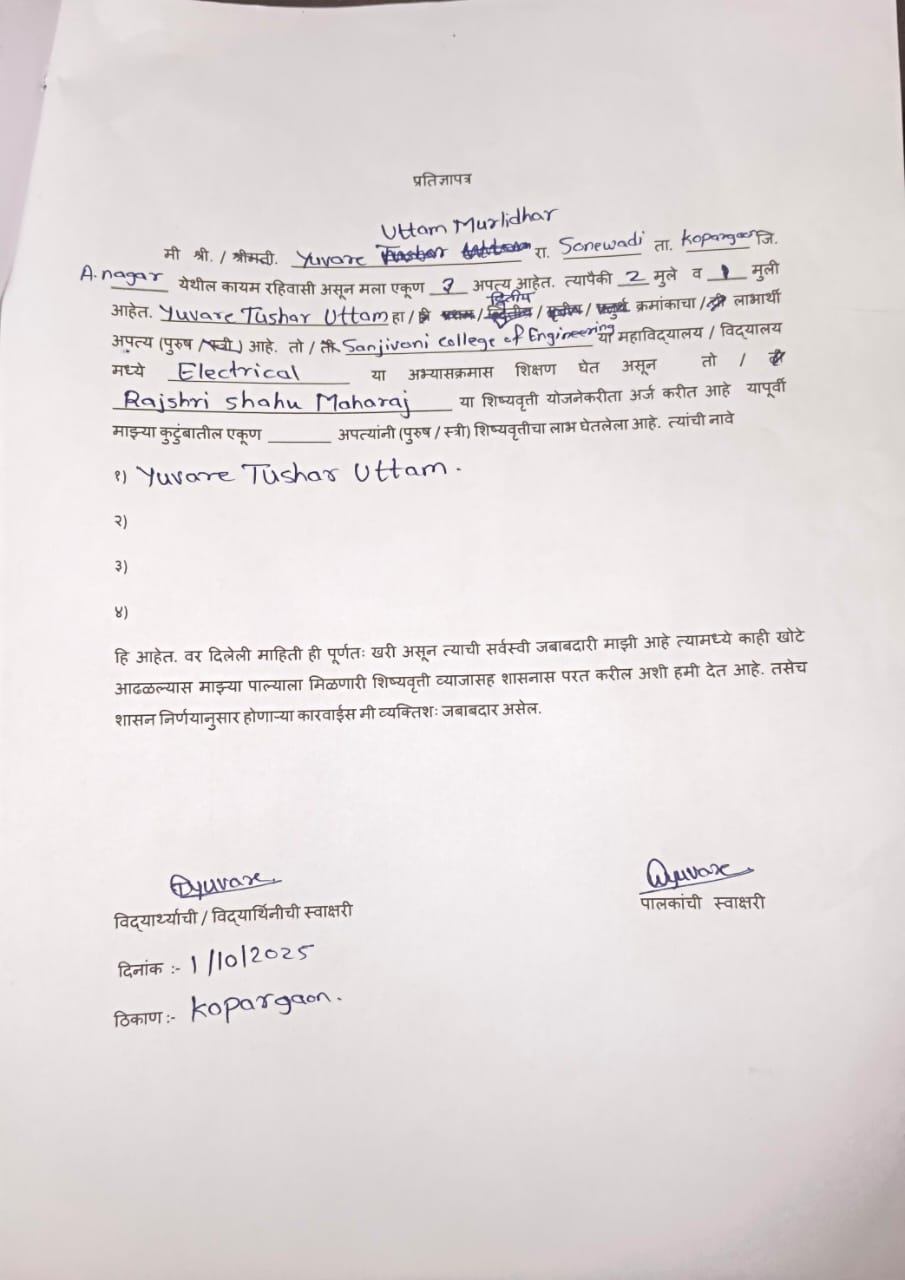 प्रतिज्ञापत्र
Uttam Murlidhar
मी श्री. / श्रीमती. Yuvare रा. Sonewadi ता. Kopargaon जि.
A.nagar येथील कायम रहिवासी असून मला एकूण 3 अपत्य आहेत. त्यापैकी 2 मुले व 1 मुली
द्वितीय
आहेत. Yuvare Tushar Uttam हा / ही प्रथम / द्वितीय / तृतीय / चतुर्थ क्रमांकाचा / ची लाभार्थी
अपत्य (पुरुष / स्त्री) आहे. तो / ती Sanjivani college of Engineering या महाविद्यालय / विद्यालय
मध्ये Electrical या अभ्यासक्रमास शिक्षण घेत असून तो / ती
Rajshri shahu Maharaj या शिष्यवृत्ती योजनेकरीता अर्ज करीत आहे यापूर्वी
माझ्या कुटुंबातील एकूण ______ अपत्यांनी (पुरुष / स्त्री) शिष्यवृत्तीचा लाभ घेतलेला आहे. त्यांची नावे
१) Yuvare Tushar Uttam.
२)
३)
४)
हि आहेत. वर दिलेली माहिती ही पूर्णतः खरी असून त्याची सर्वस्वी जबाबदारी माझी आहे त्यामध्ये काही खोटे
आढळल्यास माझ्या पाल्याला मिळणारी शिष्यवृत्ती व्याजासह शासनास परत करील अशी हमी देत आहे. तसेच
शासन निर्णयानुसार होणाऱ्या कारवाईस मी व्यक्तिशः जबाबदार असेल.
Tyuvare
uyuvare
विद्यार्थ्याची / विद्यार्थिनीची स्वाक्षरी
पालकांची स्वाक्षरी
दिनांक :- 1/10/2025
ठिकाण :- Kopargaon.